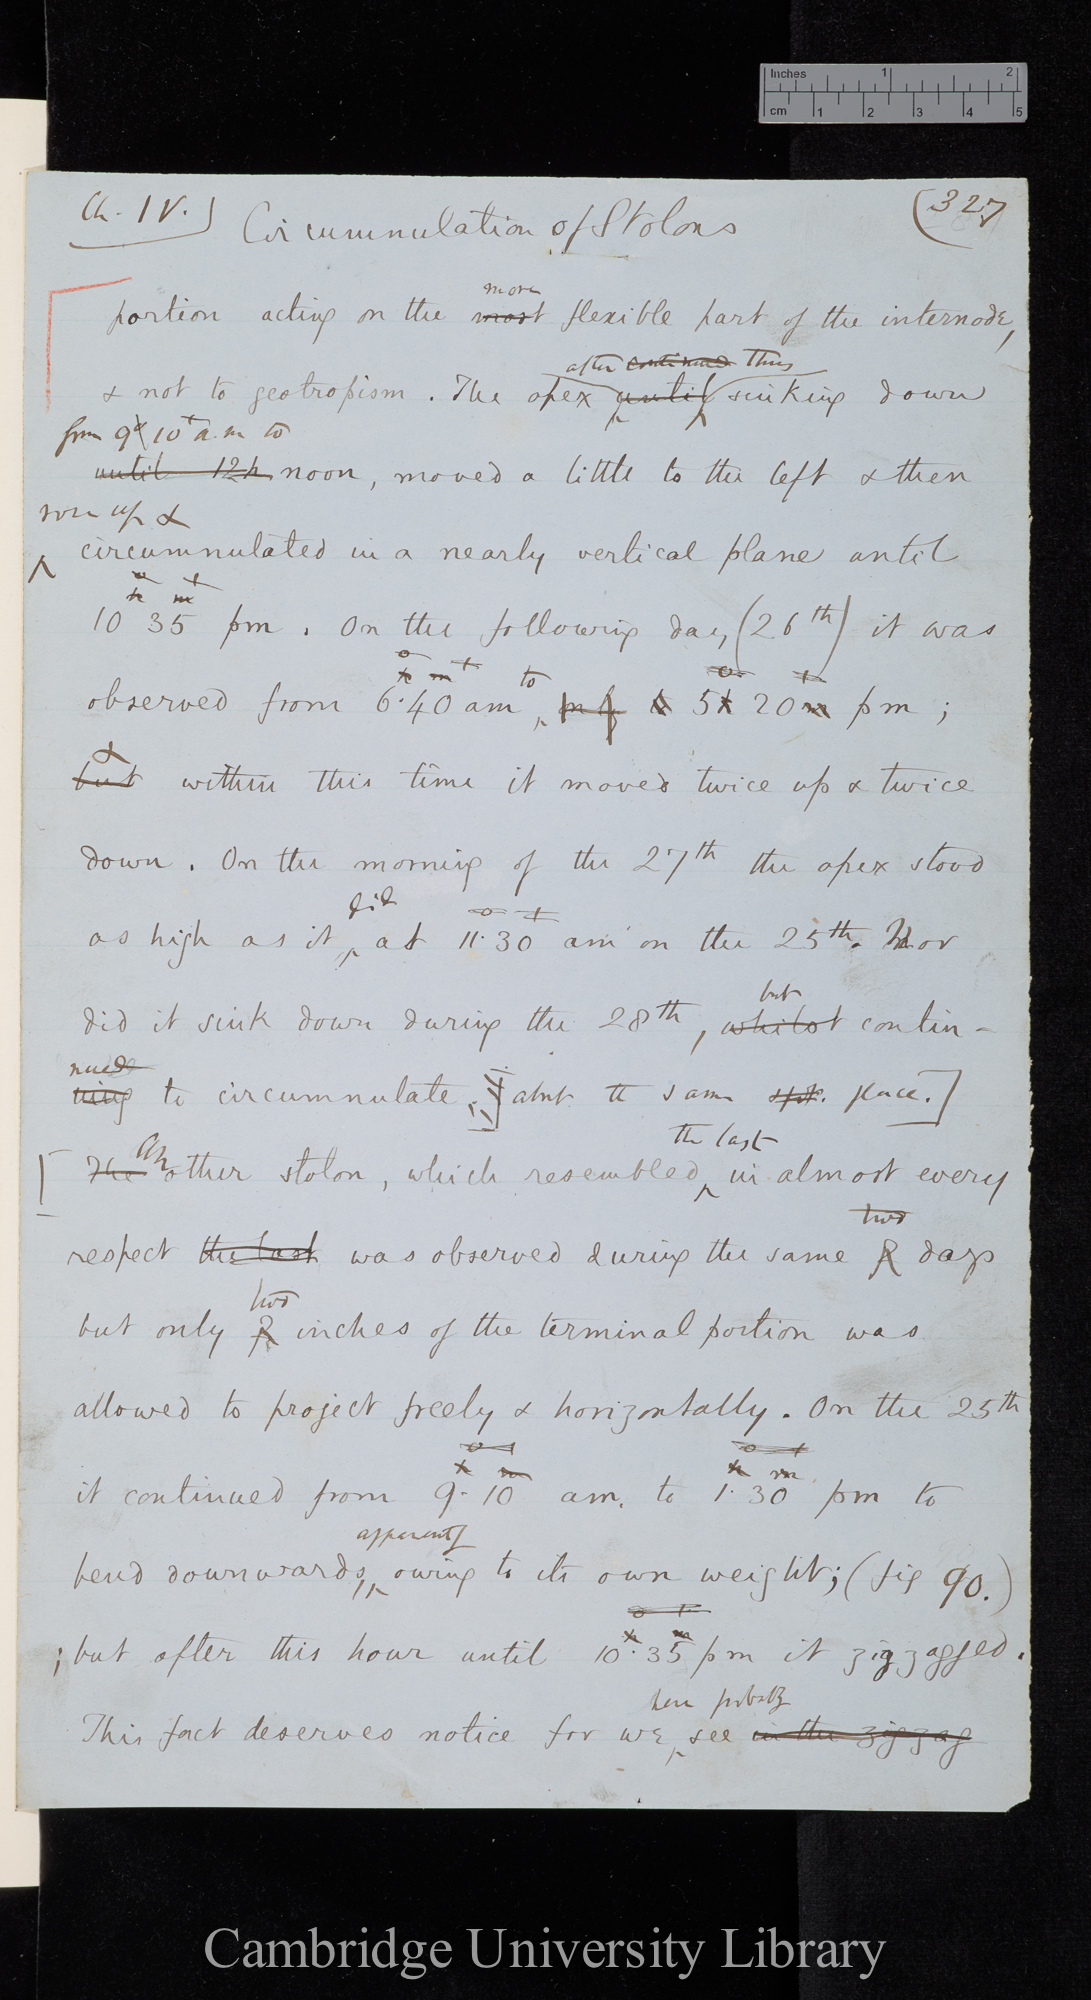 Inches 1 2
cm 1 2 3 4 5
Ch. IV.
(327
Circumnulation of Stolons
more
portion acting on the most flexible part of the internode,
after continued thus
& not to geotropism. The apex until sinking down
from 9° 10' a.m to
until 12h noon, moved a little to the left & then
rose up &
circumnulated in a nearly vertical plane until
h m
10 35 pm. On the following day (26th) it was
h m to
observed from 6.40 am 5h 20m pm;
&
but within this time it moved twice up & twice
down. On the morning of the 27th the apex stood
did
as high as it at 11.30 am on the 25th. Nor
but
did it sink down during the 28th, whilst contin-
nued
uing to circumnulate, about the same spot. place.]
An the last
The other stolon, which resembled in almost every
two
respect the last was observed during the same 2 days
two
but only 2 inches of the terminal portion was
allowed to project freely & horizontally. On the 25th
h m h m
it continued from 9.10 am. to 1.30 pm to
apparently
bend downwards, owing to its own weight; (fig 90.)
h m
; but after this hour until 10.35 pm it zigzagged.
here probably
This fact deserves notice for we see in the zigzag
Cambridge University Library